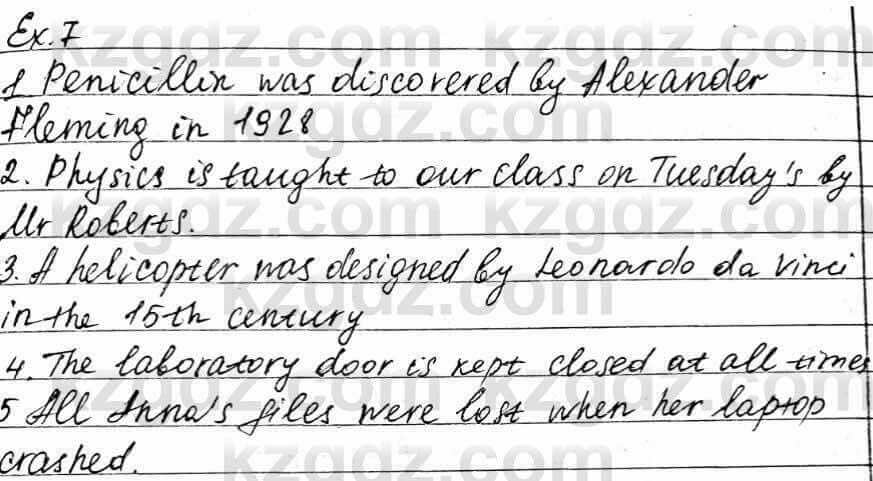 Ex. 7
1 Penicillin was discovered by Alexander
Fleming in 1928
2. Physics is taught to our class on Tuesday's by
Mr Roberts.
3. A helicopter was designed by Leonardo da Vinci
in the 15th century
4. The laboratory door is kept closed at all times
5 All Anna's files were lost when her laptop
crashed.
kzgdz.com kzgdz.com
kzgdz.com
kzgdz.com kzgdz.com
kzgdz.com
kzgdz.com kzgdz.com
kzgdz.com